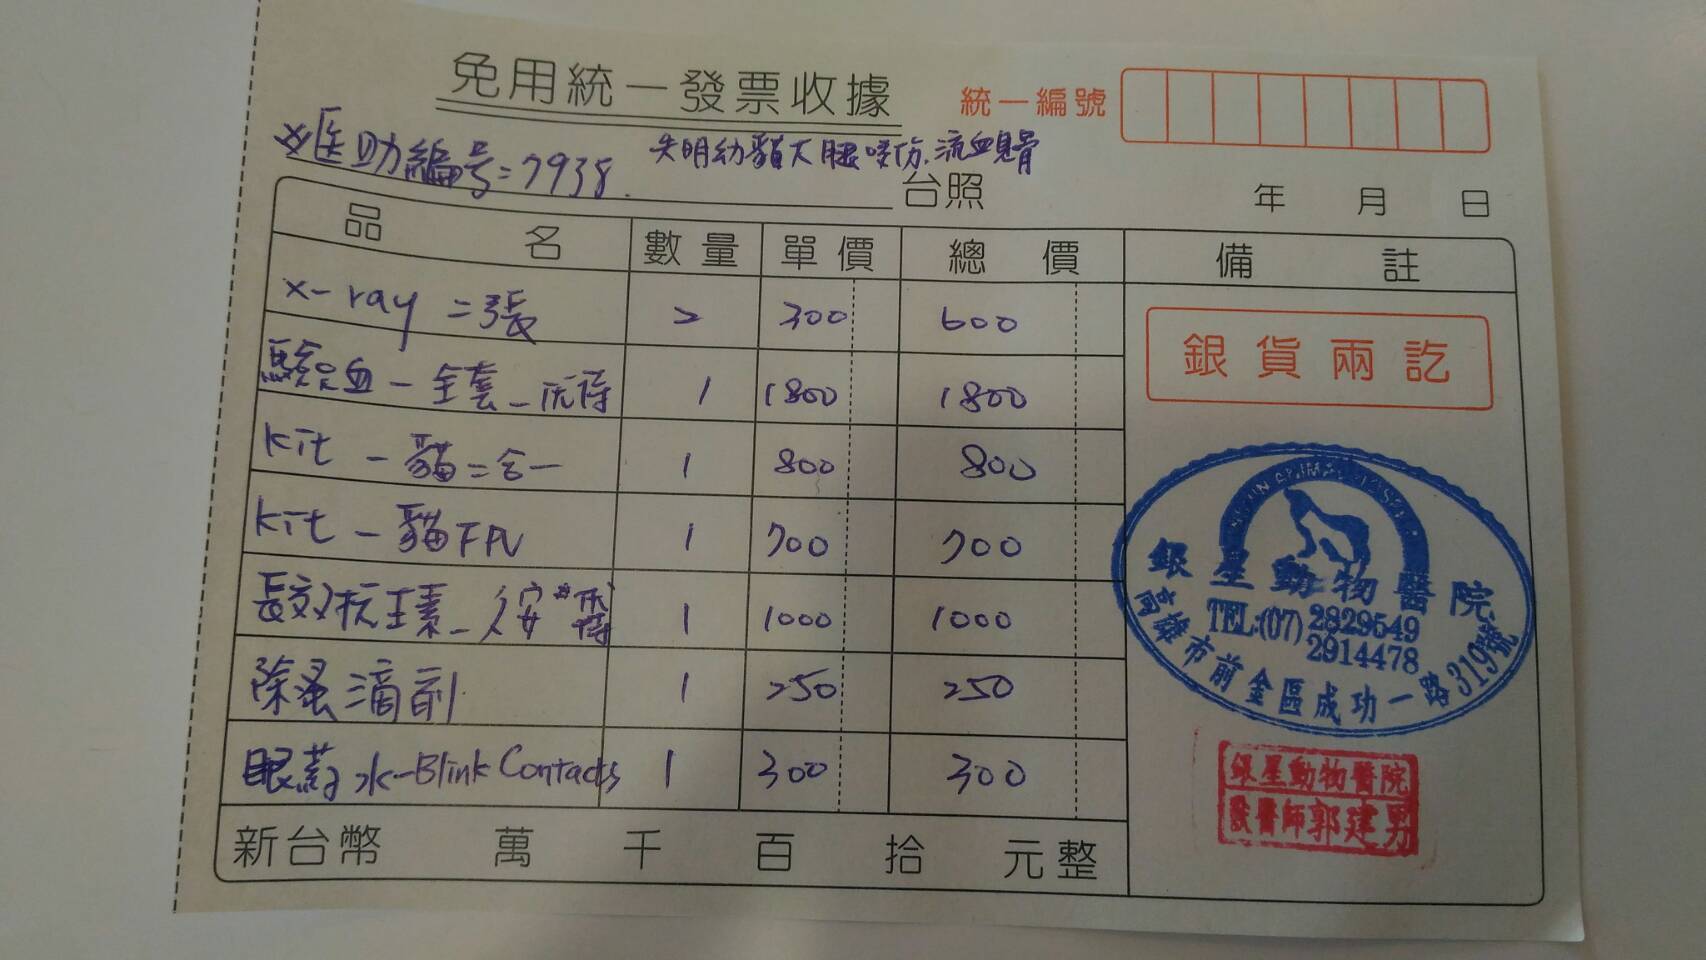 免用統一發票收據
統一編號
※医助編号=7938.
失明幼貓大腿咬伤.流血見骨
台照
年 月 日
品 名 數量 單價 總 價 備 註
x-ray 二張 2 300 600
驗血-全套-优待 1 1800 1800
kit-貓二合一 1 800 800
kit-貓FPV 1 700 700
長效抗生素 1 1000 1000
除蚤滴劑 1 250 250
眼葯水-Blink Contacts 1 300 300
新台幣 萬 千 百 拾 元整
銀貨兩訖
銀星動物醫院
TEL:(07)2829549
2914478
高雄市前金區成功一路319號
銀星動物醫院
獸醫師郭建男